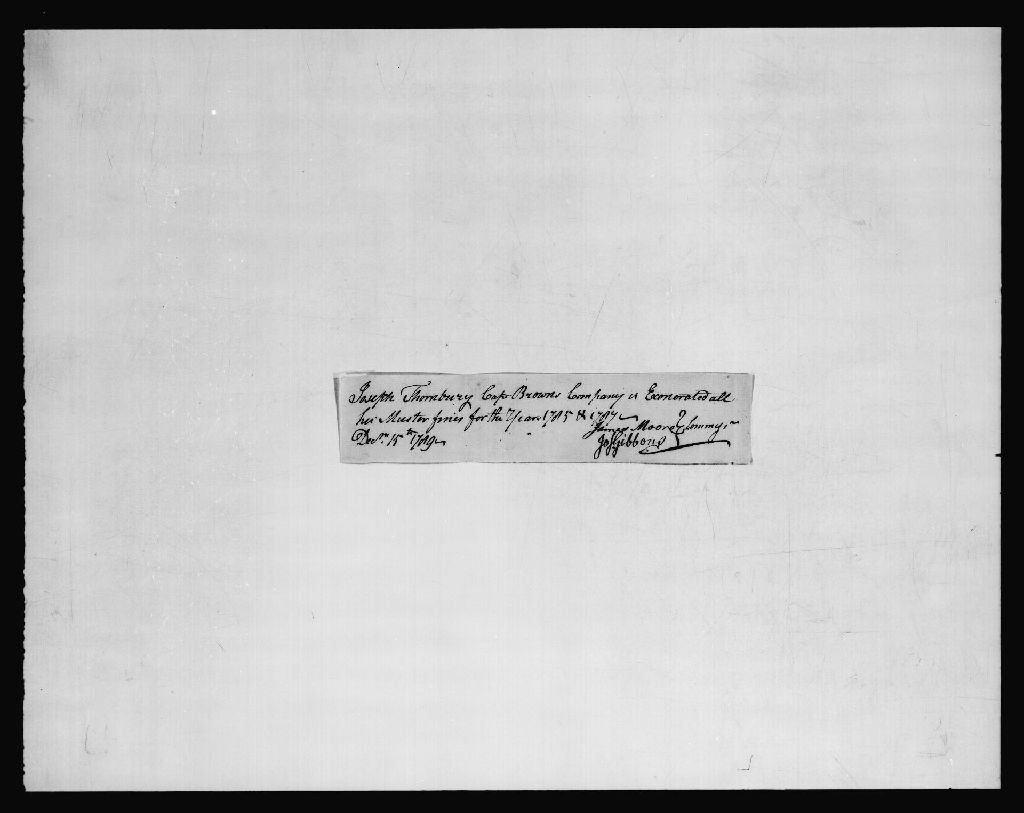 Joseph Thornbury Capt Browns Company is Exonerated all
his Muster fines for the Years 1785 & 1787
James Moore Commr
Decr 15th 1789
Jas Gibbons